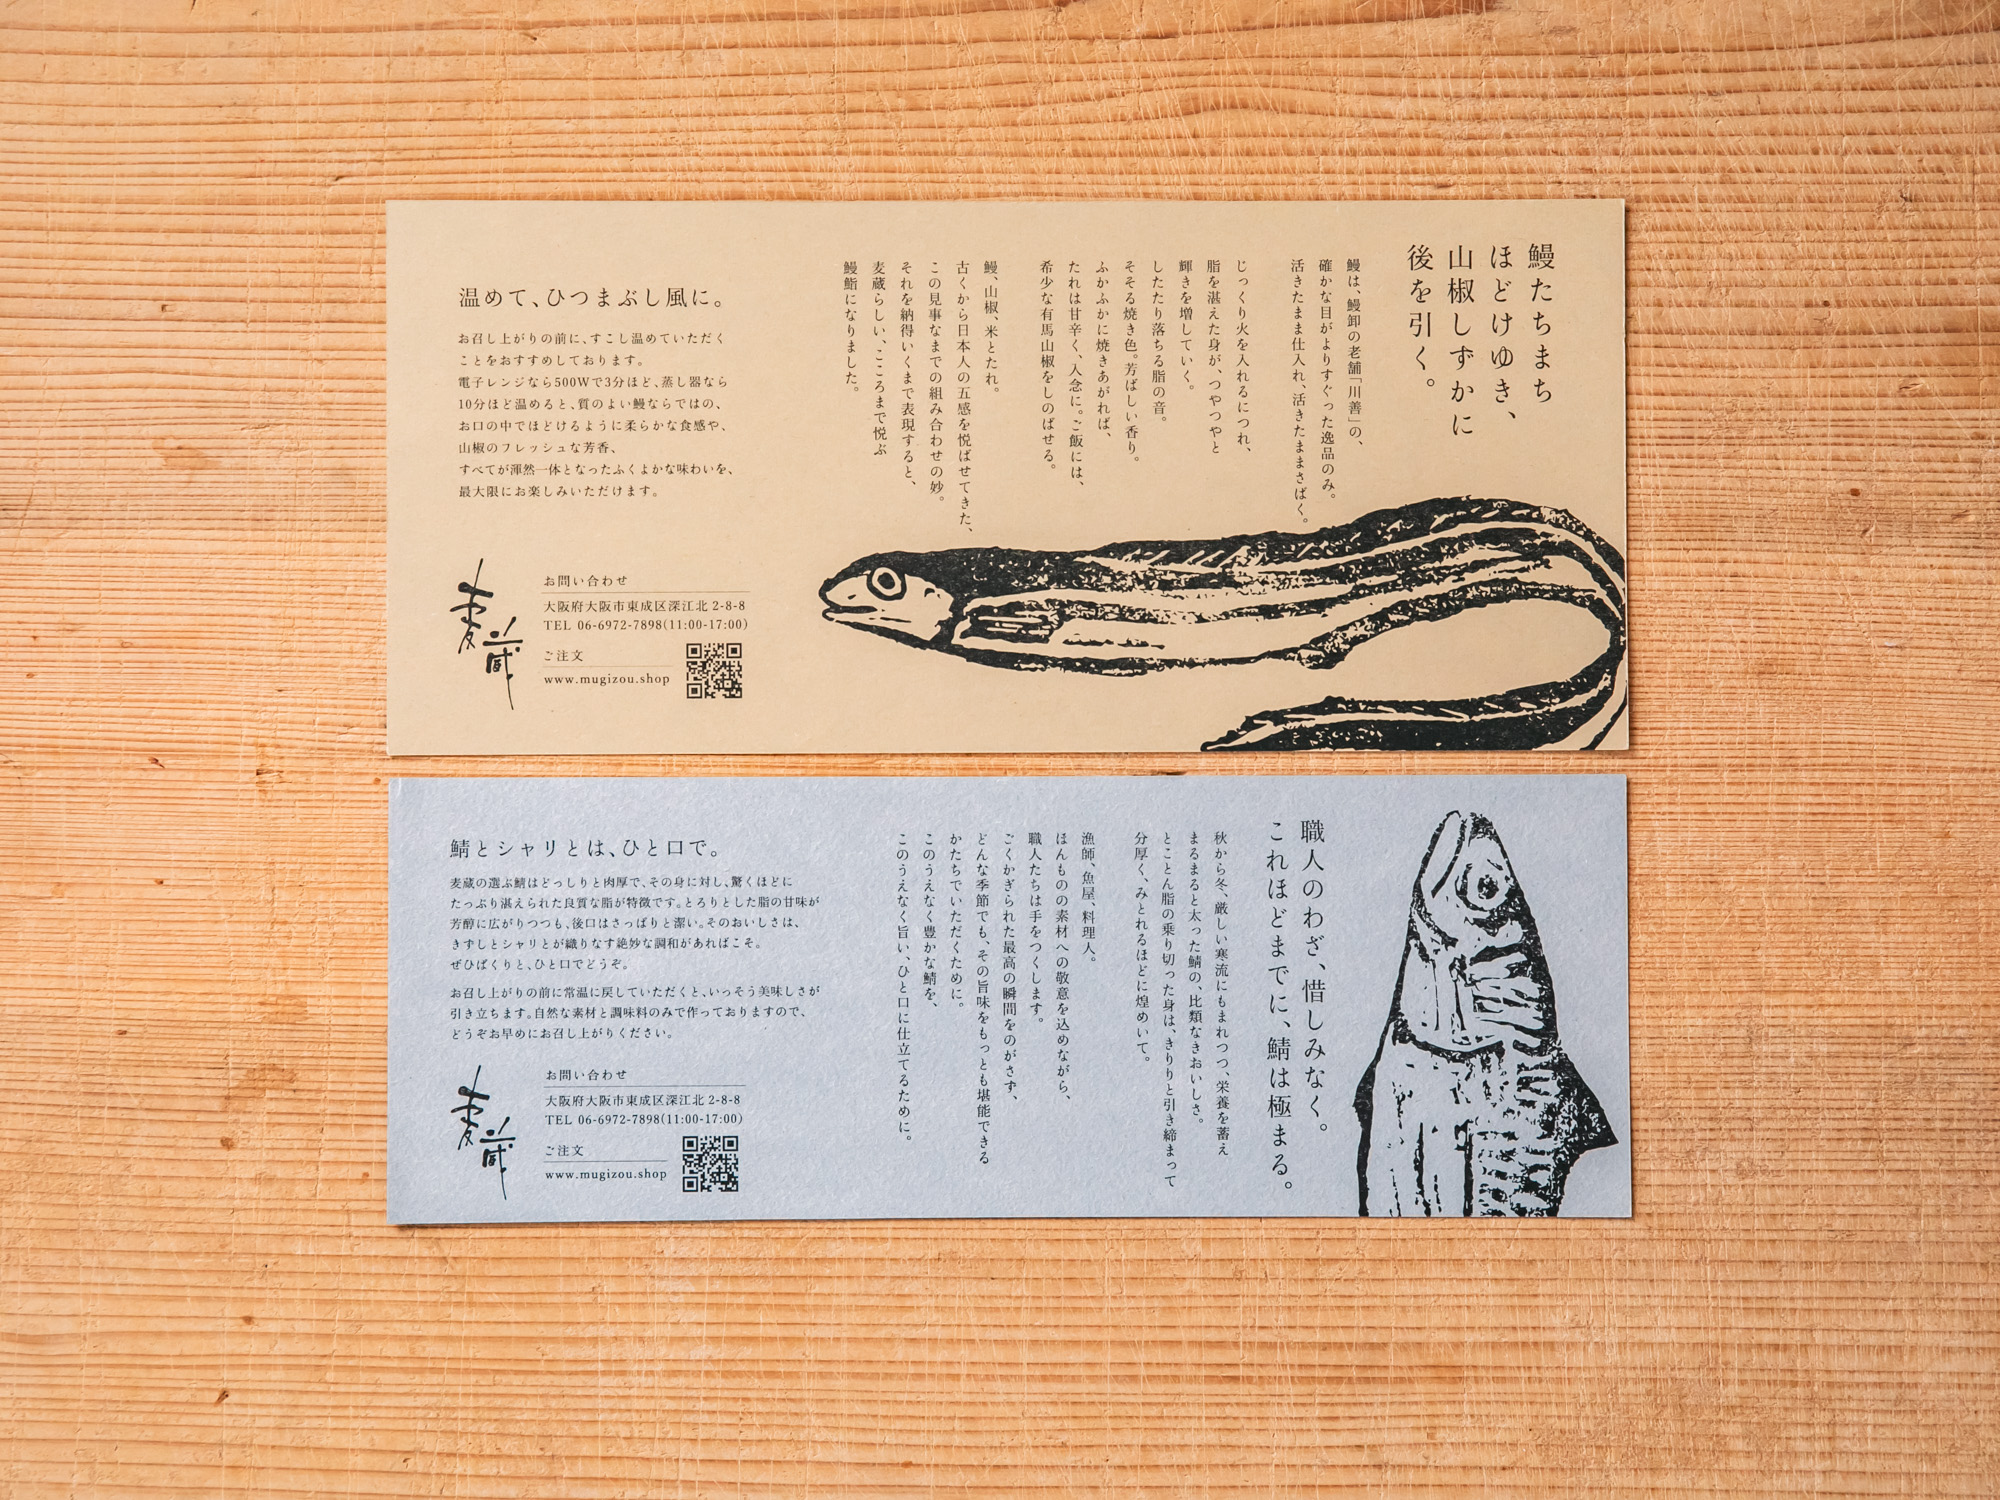 鰻たちまち
ほどけゆき、
山椒しずかに
後を引く。
鰻は、鰻卸の老舗「川善」の、
確かな目がよりすぐった逸品のみ。
活きたまま仕入れ、活きたままさばく。
じっくり火を入れるにつれ、
脂を湛えた身が、つやつやと
輝きを増していく。
したたり落ちる脂の音。
そそる焼き色。芳ばしい香り。
ふかふかに焼きあがれば、
たれは甘辛く、入念に。ご飯には、
希少な有馬山椒をしのばせる。
鰻、山椒、米とたれ。
古くから日本人の五感を悦ばせてきた、
この見事なまでの組み合わせの妙。
それを納得いくまで表現すると、
麦蔵らしい、こころまで悦ぶ
鰻鮨になりました。
温めて、ひつまぶし風に。
お召し上がりの前に、すこし温めていただく
ことをおすすめしております。
電子レンジなら500Wで3分ほど、蒸し器なら
10分ほど温めると、質のよい鰻ならではの、
お口の中でほどけるように柔らかな食感や、
山椒のフレッシュな芳香、
すべてが渾然一体となったふくよかな味わいを、
最大限にお楽しみいただけます。
麦蔵
お問い合わせ
大阪府大阪市東成区深江北 2-8-8
TEL 06-6972-7898(11:00-17:00)
ご注文
www.mugizou.shop
職人のわざ、惜しみなく。
これほどまでに、鯖は極まる。
秋から冬、厳しい寒流にもまれつつ、栄養を蓄え
まるまると太った鯖の、比類なきおいしさ。
とことん脂の乗り切った身は、きりりと引き締まって
分厚く、みとれるほどに煌めいて。
漁師、魚屋、料理人。
ほんものの素材への敬意を込めながら、
職人たちは手をつくします。
ごくかぎられた最高の瞬間をのがさず、
どんな季節でも、その旨味をもっとも堪能できる
かたちでいただくために。
このうえなく豊かな鯖を、
このうえなく旨い、ひと口に仕立てるために。
鯖とシャリとは、ひと口で。
麦蔵の選ぶ鯖はどっしりと肉厚で、その身に対し、驚くほどに
たっぷり湛えられた良質な脂が特徴です。とろりとした脂の甘味が
芳醇に広がりつつも、後口はさっぱりと潔い。そのおいしさは、
きずしとシャリとが織りなす絶妙な調和があればこそ。
ぜひぱくりと、ひと口でどうぞ。
お召し上がりの前に常温に戻していただくと、いっそう美味しさが
引き立ちます。自然な素材と調味料のみで作っておりますので、
どうぞお早めにお召し上がりください。
麦蔵
お問い合わせ
大阪府大阪市東成区深江北 2-8-8
TEL 06-6972-7898(11:00-17:00)
ご注文
www.mugizou.shop